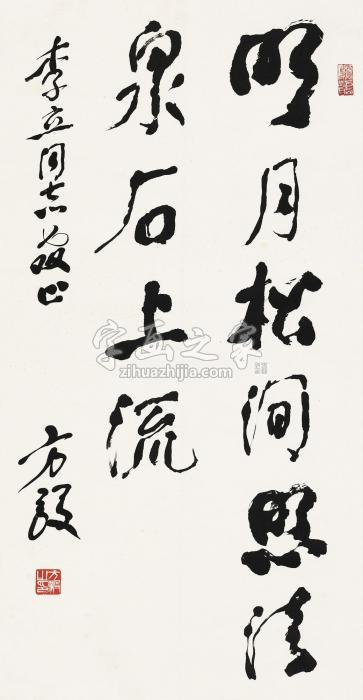 明月松涧照清
泉石上流
李立同志正
方毅
方毅之印
字画之家
zihuazhijia.com